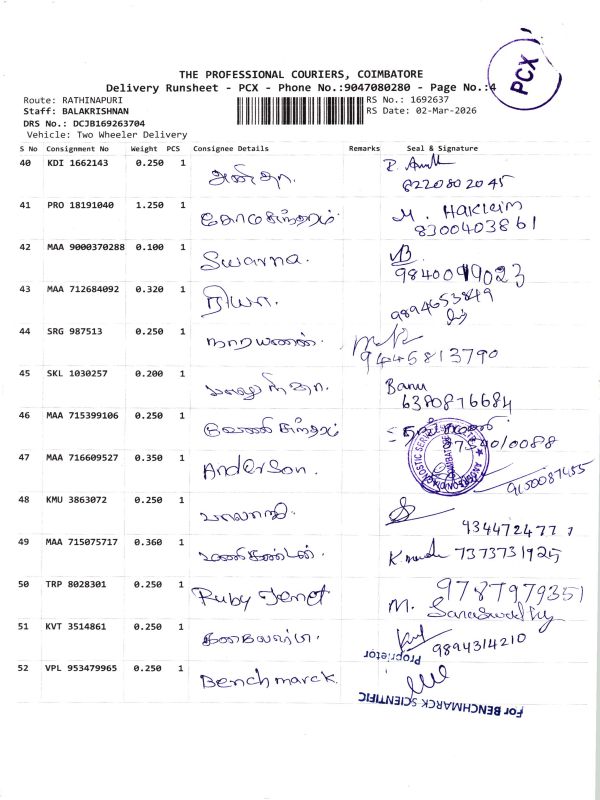 PCX
THE PROFESSIONAL COURIERS, COIMBATORE
Delivery Runsheet - PCX - Phone No.:9047080280 - Page No.:4
Route: RATHINAPURI
RS No.: 1692637
Staff: BALAKRISHNAN
RS Date: 02-Mar-2026
DRS No.: DCJB169263704
Vehicle: Two Wheeler Delivery
S No Consignment No Weight PCS Consignee Details Remarks Seal & Signature
40 KDI 1662143 0.250 1
8220802045
41 PRO 18191040 1.250 1 M. Hakleim
8300403861
42 MAA 9000370288 0.100 1 Swarna.
9840099023
43 MAA 712684092 0.320 1 ரியா. 9894653849
44 SRG 987513 0.250 1 நாராயணன்.
9445813790
45 SKL 1030257 0.200 1 Banu
6380876684
46 MAA 715399106 0.250 1
47 MAA 716609527 0.350 1 Anderson.
9150087455
48 KMU 3863072 0.250 1 பாலாஜி
49 MAA 715075717 0.360 1 மணிகண்டன். 7373731925
50 TRP 8028301 0.250 1 Ruby Jenet 9787979351
M. Saraswathy
51 KVT 3514861 0.250 1 9894314210
Proprietor
52 VPL 953479965 0.250 1 Benchmarck.
For BENCHMARCK SCIENTIFIC